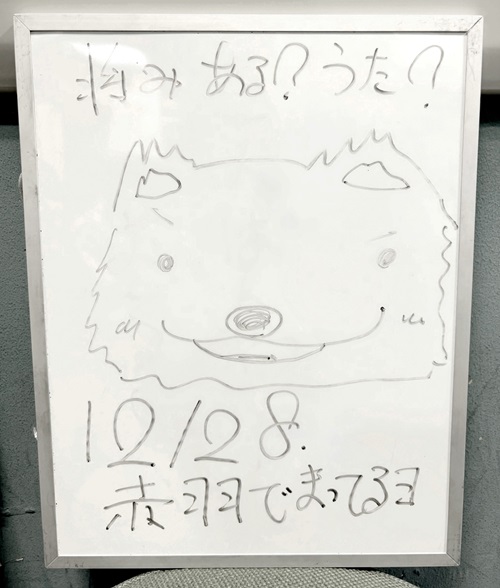 悩み ある？うた？
12/28.
赤羽でまってるヨ